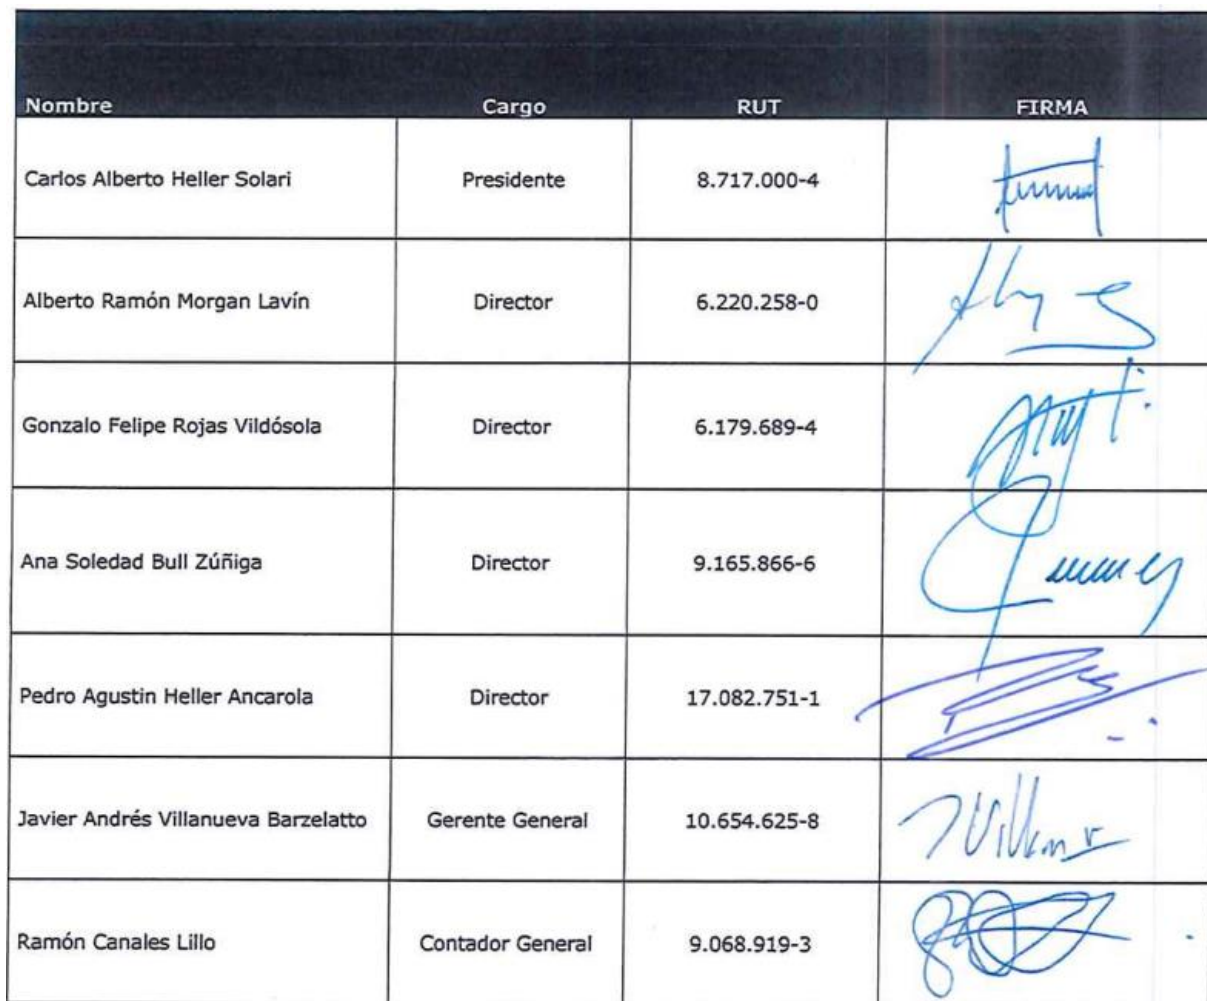 Nombre Cargo RUT FIRMA
Carlos Alberto Heller Solari Presidente 8.717.000-4
Alberto Ramón Morgan Lavín Director 6.220.258-0
Gonzalo Felipe Rojas Vildósola Director 6.179.689-4
Ana Soledad Bull Zúñiga Director 9.165.866-6
Pedro Agustin Heller Ancarola Director 17.082.751-1
Javier Andrés Villanueva Barzelatto Gerente General 10.654.625-8
Ramón Canales Lillo Contador General 9.068.919-3